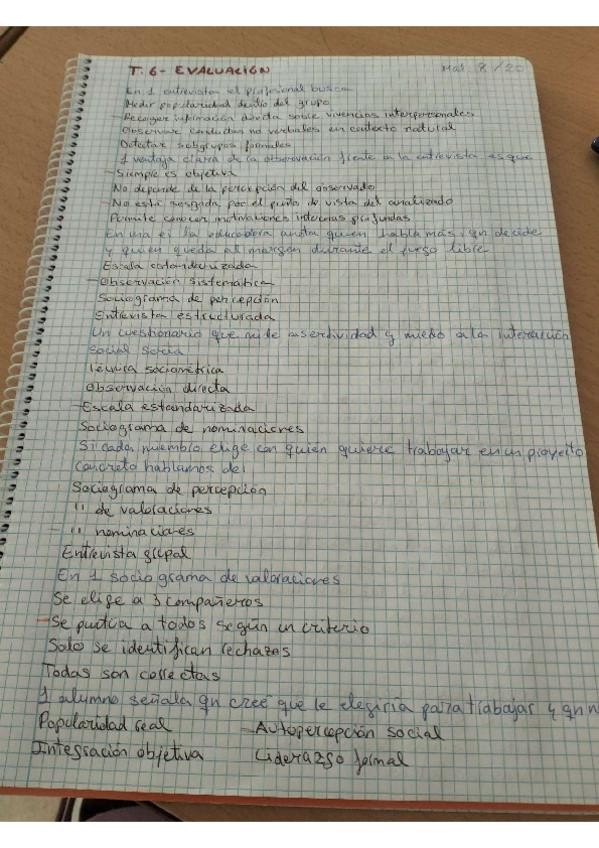 T. 6 - EVALUACIÓN Mal. 8/20
En 1 entrevista el profesional busca
Medir popularidad dentro del grupo
- Recoger información directa sobre vivencias interpersonales
Observar conductas no verbales en contexto natural
Detectar subgrupos formales
1 ventaja clara de la observación frente a la entrevista es que
- Siempre es objetiva
No depende de la percepción del observado
- No está sesgada por el punto de vista del analizado
Permite conocer motivaciones internas profundas
En una ei la educadora anota quien habla más, qn decide
y quien queda al margen durante el juego libre
Escala estandarizada
- Observación sistemática
Sociograma de percepción
Entrevista estructurada
Un cuestionario que mide asertividad y miedo a la interacción
social sería
Técnica sociométrica
Observación directa
- Escala estandarizada
Sociograma de nominaciones
Si cada miembro elige con quien quiere trabajar en un proyecto
concreto hablamos de:
Sociograma de percepción
" de valoraciones
- " nominaciones
Entrevista grupal
En 1 sociograma de valoraciones
Se elige a 3 compañeros
- Se puntúa a todos según un criterio
Solo se identifican rechazos
Todas son correctas
1 alumno señala qn cree que le elegiría para trabajar y qn n
Popularidad real - Autopercepción social
Integración objetiva Liderazgo formal